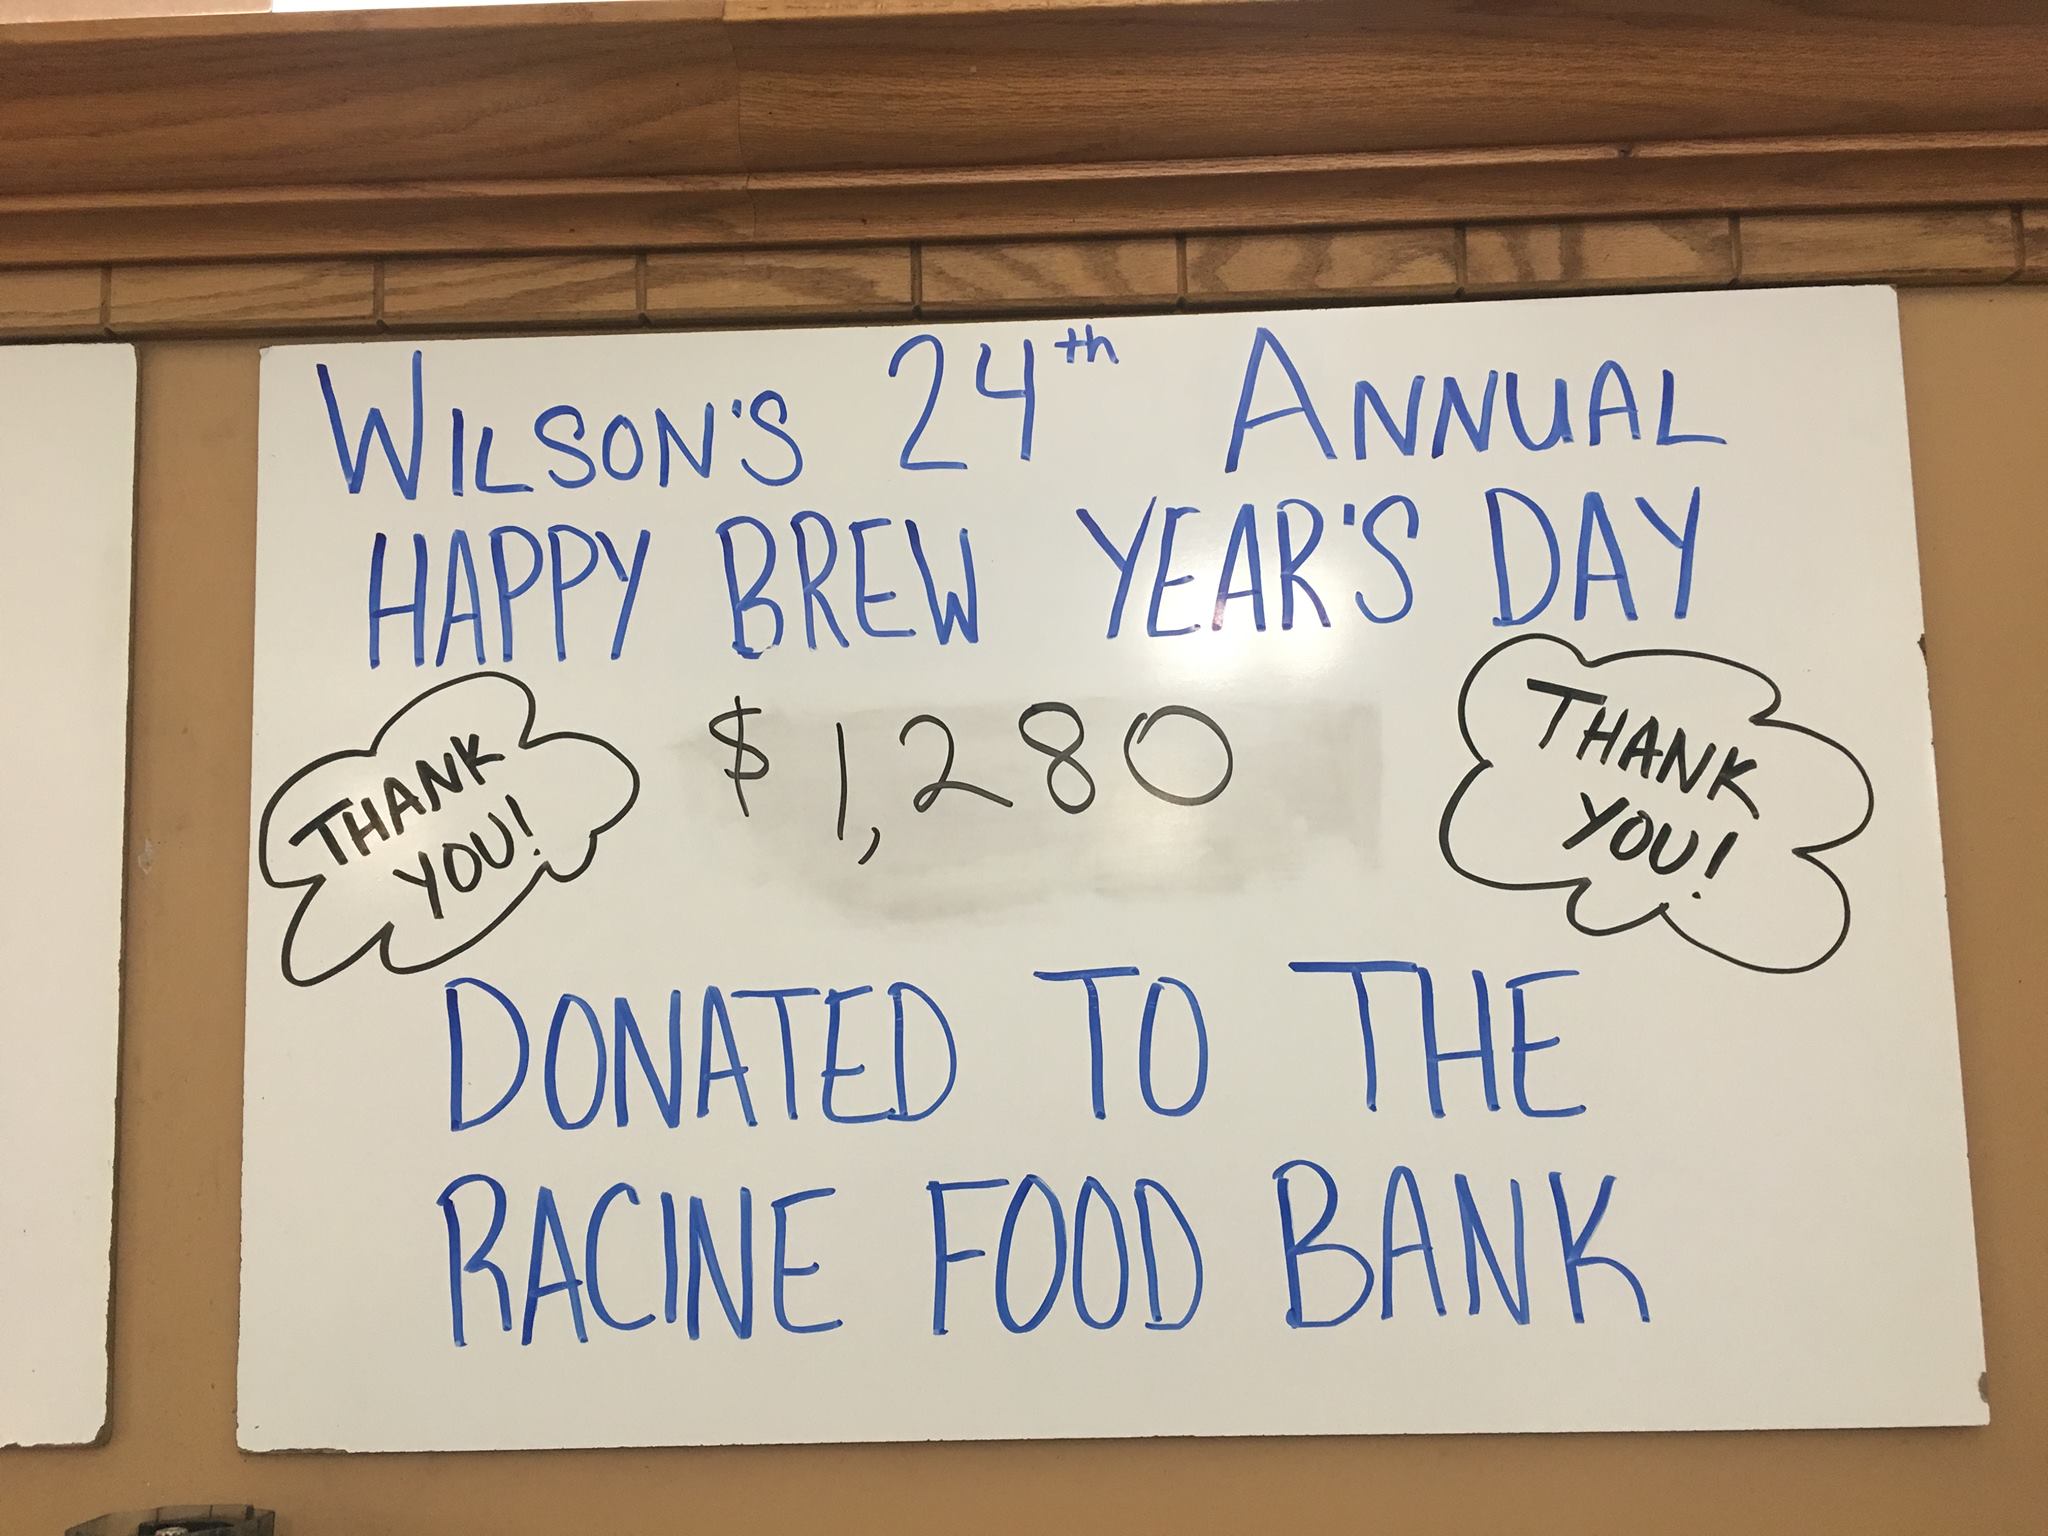 WILSON'S 24th ANNUAL
HAPPY BREW YEAR'S DAY
THANK
YOU!
$1,280
THANK
YOU!
DONATED TO THE
RACINE FOOD BANK